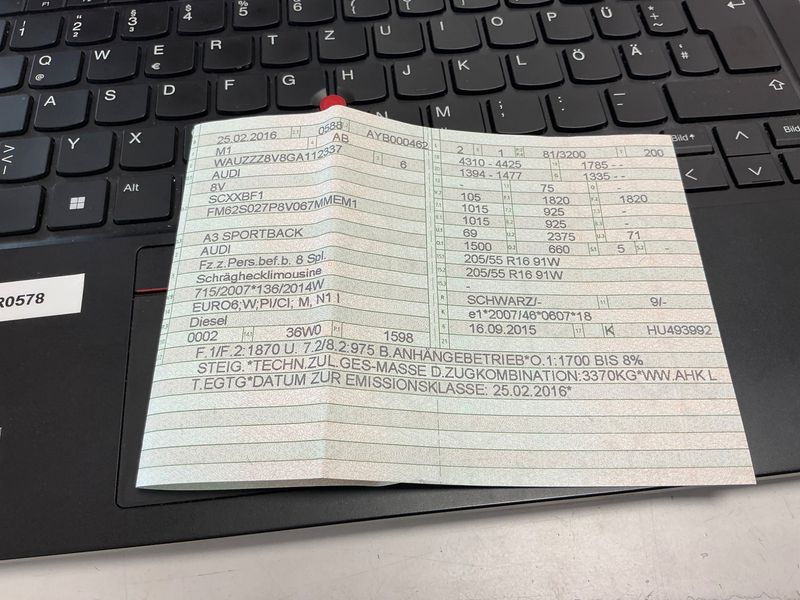 25.02.2016 0588 AYB000462
M1 AB
WAUZZZ8V8GA112337 6
AUDI
8V
SCXXBF1
FM62S027P8V067MMEM1
A3 SPORTBACK
AUDI
Fz.z.Pers.bef.b. 8 Spl.
Schräghecklimousine
715/2007*136/2014W
EURO6;W;PI/CI; M, N1 I
Diesel
0002 36W0 1598
2 1 81/3200 200
4310 - 4425 1785 - -
1394 - 1477 1335 - -
- 75 -
105 1820 1820
1015 925 -
1015 925 -
69 2375 71
1500 660 5 -
205/55 R16 91W
205/55 R16 91W
-
SCHWARZ/- 9/-
e1*2007/46*0607*18
16.09.2015 K HU493992
F.1/F.2:1870 U. 7.2/8.2:975 B.ANHÄNGEBETRIEB*O.1:1700 BIS 8%
STEIG.*TECHN.ZUL.GES-MASSE D.ZUGKOMBINATION:3370KG*WW.AHK L
T.EGTG*DATUM ZUR EMISSIONSKLASSE: 25.02.2016*
R0578
1 2 " 2 3 § 3 4 $ 5 % 6 & 7 8 9 0 ß
Q @ W E € R T Z U I O P Ü + * ~
A S D F G H J K L Ö Ä # '
Y X N M
Alt Bild↑